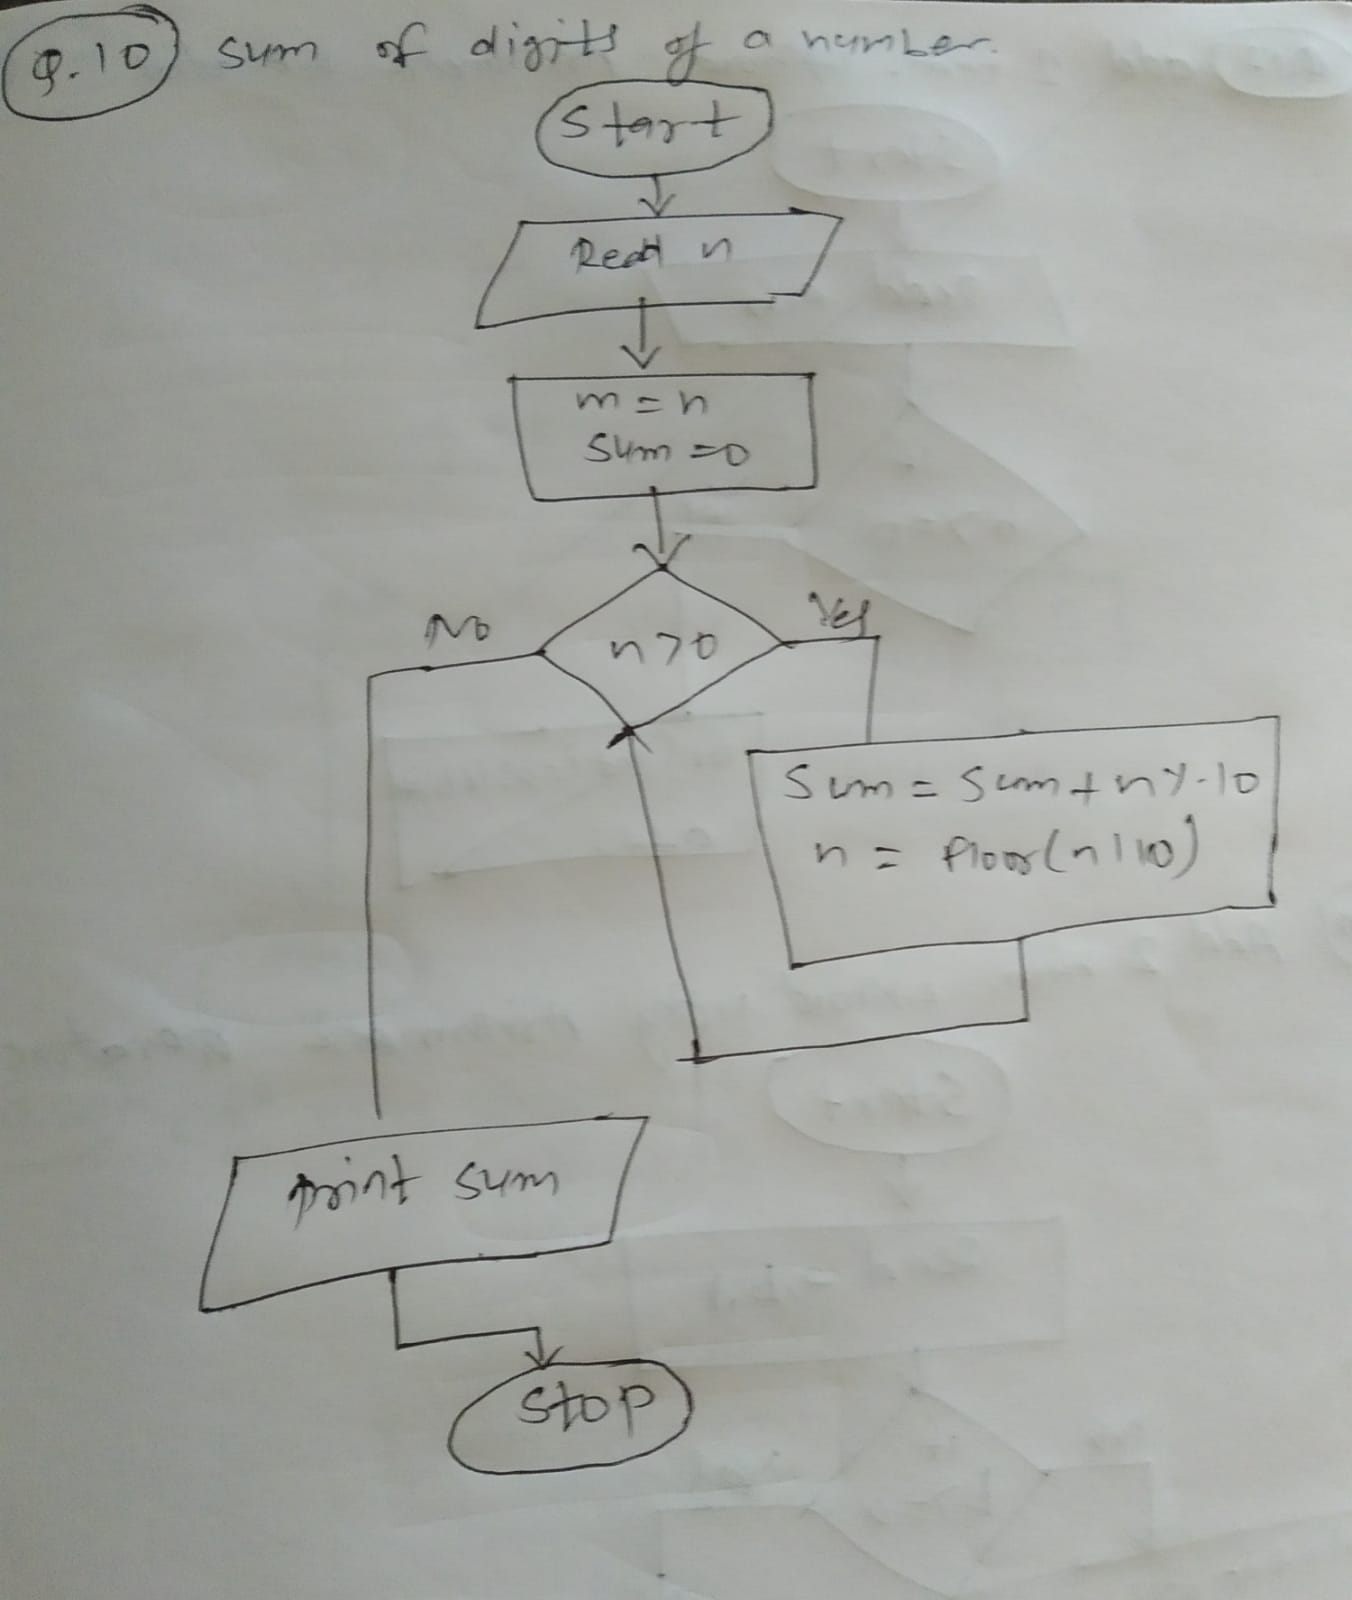 Q.10 Sum of digits of a number.
Start
Read n
m=n
Sum=0
n>0
No
Yes
Sum = Sum+n%10
n = floor(n/10)
print sum
Stop